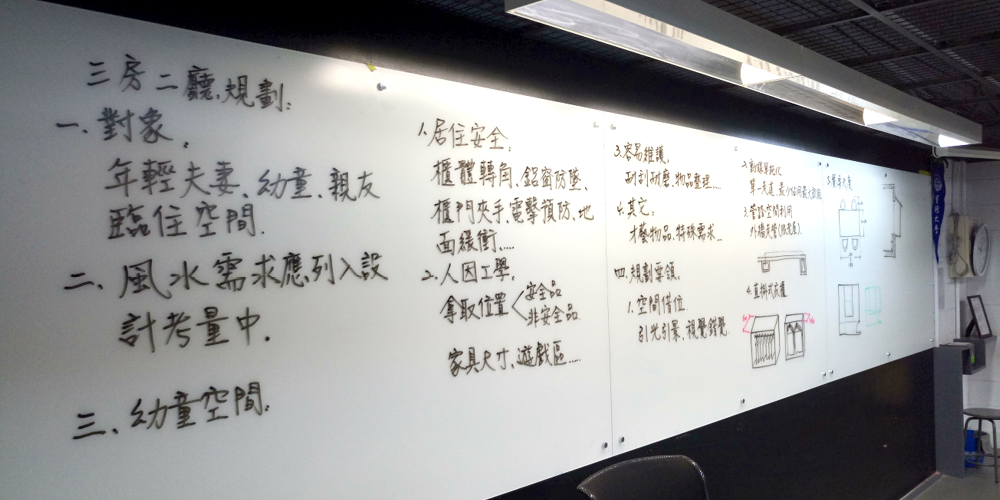 三房二廳.規劃:
一、對象.
年輕夫妻、幼童、親友
臨住空間.
二、風水需求應列入設
計考量中.
三、幼童空間.
1.居住安全.
櫃體轉角、鋁窗防墜、
櫃門夾手、電擊預防、地
面緩衝.....
2.人因工學.
拿取位置<安全品
非安全品
家具尺寸、遊戲區.....
3.容易維護.
耐刮耐磨、物品整理....
4.其它.
才藝物品、特殊需求...
四、規劃要領.
1.空間借位.
引光引景、視覺錯覺.
2.動線單純化
3.管路空間利用
4.直掛式衣櫃